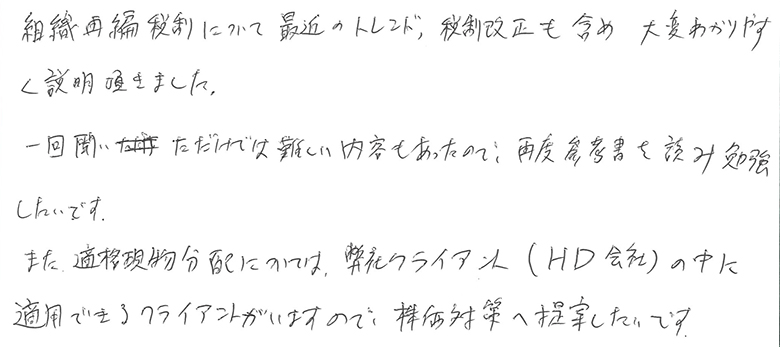 組織再編税制について最近のトレンド、税制改正も含め 大変わかりやす
く説明頂きました。
一回聞いただけでは難しい内容もあったので、再度参考書を読み勉強
したいです。
また、適格現物分配については、弊社クライアント（HD会社）の中に
適用できるクライアントがいますので、株価対策へ提案したいです。